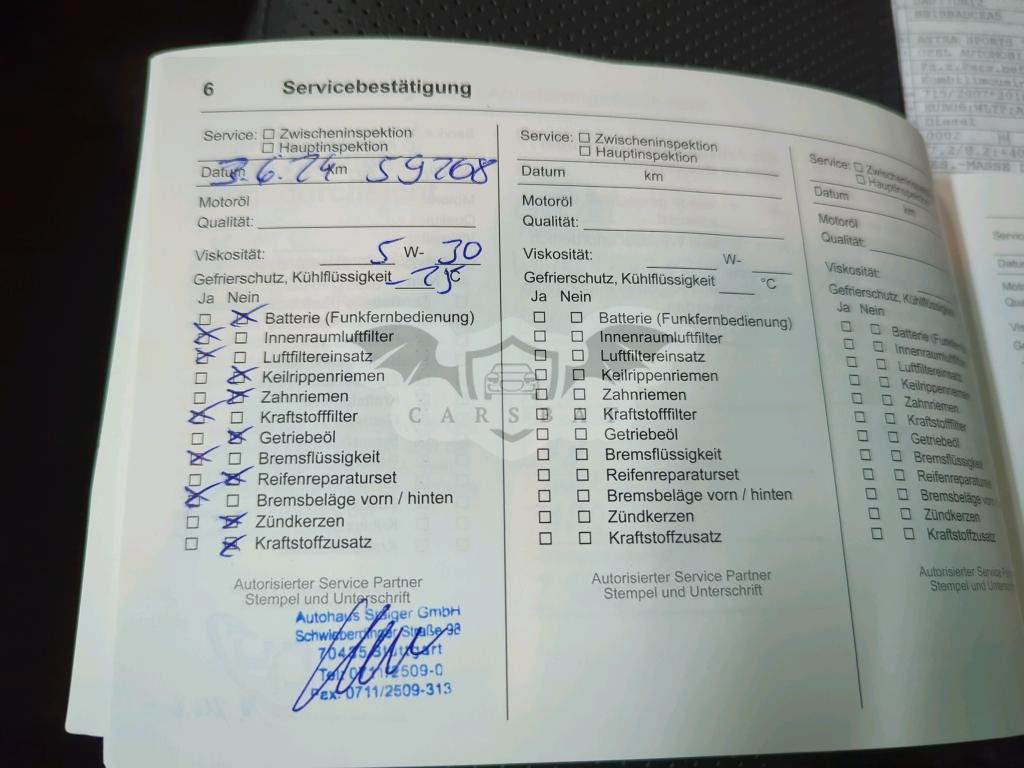 6 Servicebestätigung
Service: ☐ Zwischeninspektion
☐ Hauptinspektion
Datum 3.6.24 km 59208
Motoröl
Qualität:
Viskosität: 5 W- 30
Gefrierschutz, Kühlflüssigkeit -25 °C
Ja Nein
☐ ☒ Batterie (Funkfernbedienung)
☒ ☐ Innenraumluftfilter
☒ ☐ Luftfiltereinsatz
☐ ☒ Keilrippenriemen
☐ ☒ Zahnriemen
☒ ☐ Kraftstofffilter
☐ ☒ Getriebeöl
☒ ☐ Bremsflüssigkeit
☐ ☒ Reifenreparaturset
☒ ☐ Bremsbeläge vorn / hinten
☐ ☒ Zündkerzen
☐ ☒ Kraftstoffzusatz
Autorisierter Service Partner
Stempel und Unterschrift
Autohaus GmbH
Schwieberdinger Straße 98
70435 Stuttgart
Tel. 0711/2509-0
Fax. 0711/2509-313
Service: ☐ Zwischeninspektion
☐ Hauptinspektion
Datum km
Motoröl
Qualität:
Viskosität: W-
Gefrierschutz, Kühlflüssigkeit °C
Ja Nein
☐ ☐ Batterie (Funkfernbedienung)
☐ ☐ Innenraumluftfilter
☐ ☐ Luftfiltereinsatz
☐ ☐ Keilrippenriemen
☐ ☐ Zahnriemen
☐ ☐ Kraftstofffilter
☐ ☐ Getriebeöl
☐ ☐ Bremsflüssigkeit
☐ ☐ Reifenreparaturset
☐ ☐ Bremsbeläge vorn / hinten
☐ ☐ Zündkerzen
☐ ☐ Kraftstoffzusatz
Autorisierter Service Partner
Stempel und Unterschrift
Service: ☐
☐ Hauptinspektion
Datum km
Motoröl
Qualität:
Viskosität:
Gefrierschutz,
Ja Nein
☐ ☐ Batterie
☐ ☐
☐ ☐ Luftfiltereinsatz
☐ ☐ Keilrippenriemen
☐ ☐ Zahnriemen
☐ ☐ Kraftstofffilter
☐ ☐ Getriebeöl
☐ ☐ Bremsflüssigkeit
☐ ☐ Reifenreparaturset
☐ ☐ Bremsbeläge
☐ ☐ Zündkerzen
☐ ☐ Kraftstoffzusatz
Autorisierter Service
Stempel und
ASTRA SPORTS
Diesel
0002
CARSBAT